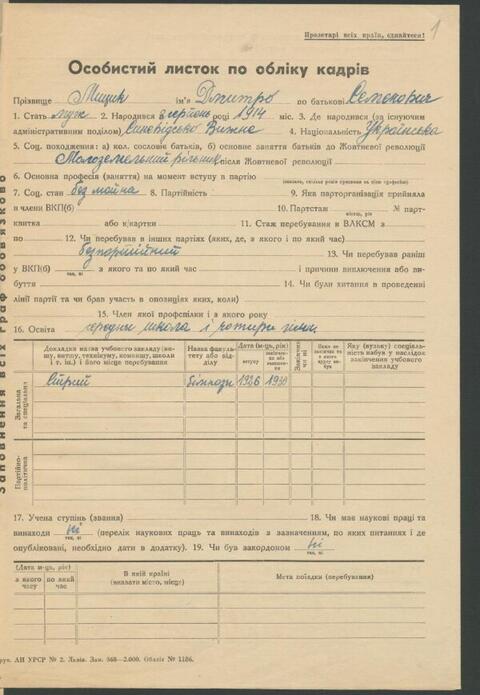 1
Пролетарі всіх країн, єднайтеся!
Особистий листок по обліку кадрів
Прізвище Мищик ім'я Дмитро по батькові Семенович
1. Стать муж 2. Народився 8 серпень році 1914 міс. 3. Де народився (за існуючим
адміністративним поділом) Синевідсько Вижнє 4. Національність Українська
5. Соц. походження: а) кол. сословіє батьків, б) основне заняття батьків до Жовтневої революції
Малоземельний рільник після Жовтневої революції
6. Основна професія (заняття) на момент вступу в партію
7. Соц. стан без майна 8. Партійність 9. Яка парторганізація прийняла
в члени ВКП(б) 10. Партстаж № парт-
місяць, рік
квитка або к/картки 11. Стаж перебування в ВЛКСМ з
по 12. Чи перебував в інших партіях (яких, де, з якого і по який час)
безпартійний 13. Чи перебував раніш
у ВКП(б) з якого та по який час і причини виключення або ви-
так, ні
буття 14. Чи були хитання в проведенні
лінії партії та чи брав участь в опозиціях яких, коли)
15. Член якої профспілки і з якого року
16. Освіта середня школа і чотири
Докладна назва учбового закладу (ви-
шу, втузу, технікуму, комвишу, школи
і т. ін.) і його місце перебування
Назва факуль-
тету або від-
ділу
Дата (м-ць, рік)
вступу
закінчен-
ня або
вибуття
Закінчив
чи ні
Якщо не
закінчив то
з якого
курсу ви-
був
Яку (вузьку) спеціаль-
ність набув в наслідок
закінчення учбового
закладу
Загальна
та спеціальна
Стрий 1926 1930
Партійно-
політична
Заповнення всіх граф обов'язково
17. Учена ступінь (звання) 18. Чи має наукові праці та
винаходи ні (перелік наукових праць та винаходів з зазначенням, по яких питаннях і де
так, ні
опубліковані, необхідно дати в додатку). 19. Чи був закордоном ні
так, ні
(Дата м-ць, рік)
з якого
часу
по який
час
В якій країні
(вказати місто, місце)
Мета поїздки (перебування)
рук. АН УРСР № 2. Львів. Зам. 368—2.000. Обліт № 1186.